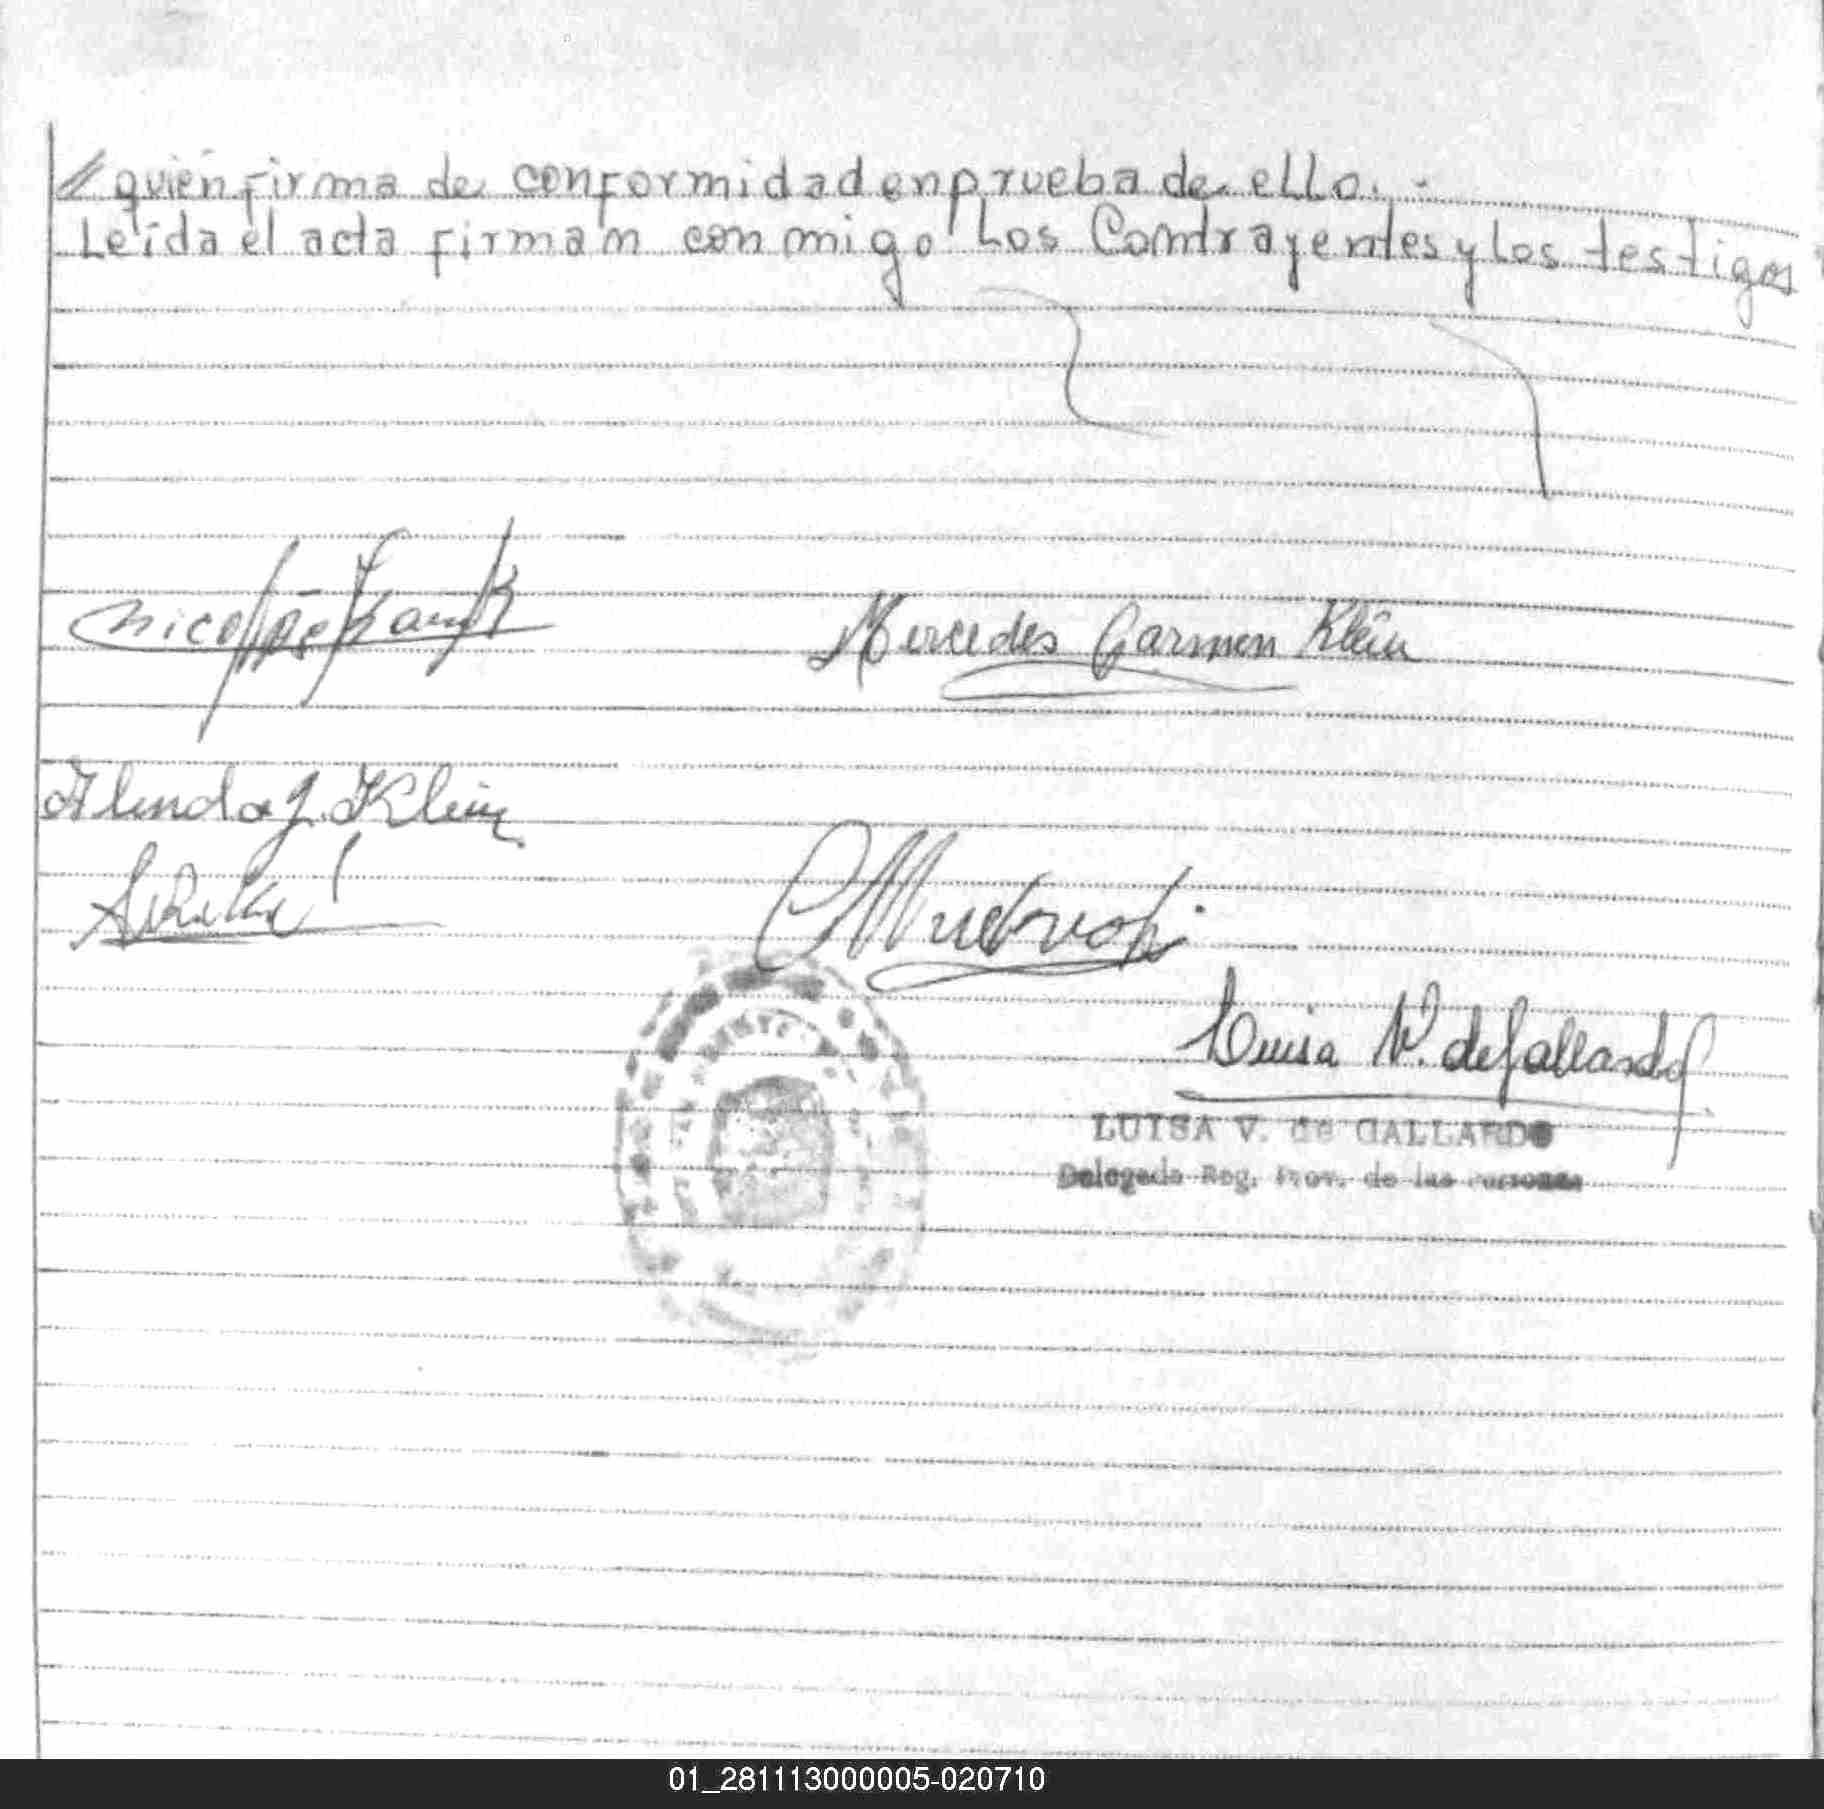 // quién firma de conformidad en prueba de ello. -
Leída el acta firman conmigo Los Contrayentes y los testigos
Mercedes Carmen Klein
Klein
Luisa V. de Gallardo
LUISA V. de GALLARDO
Delegada Reg. Prov. de las Personas
01_281113000005-020710